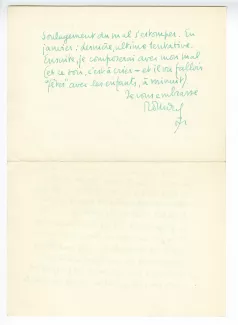 Soulagement du mal s'estompe. En
janvier : dernière, ultime tentative.
Ensuite, je composerai avec mon mal
(et ce soir, c'est à crier – et il va falloir
"fêter" avec les enfants, à minuit)
Je vous embrasse